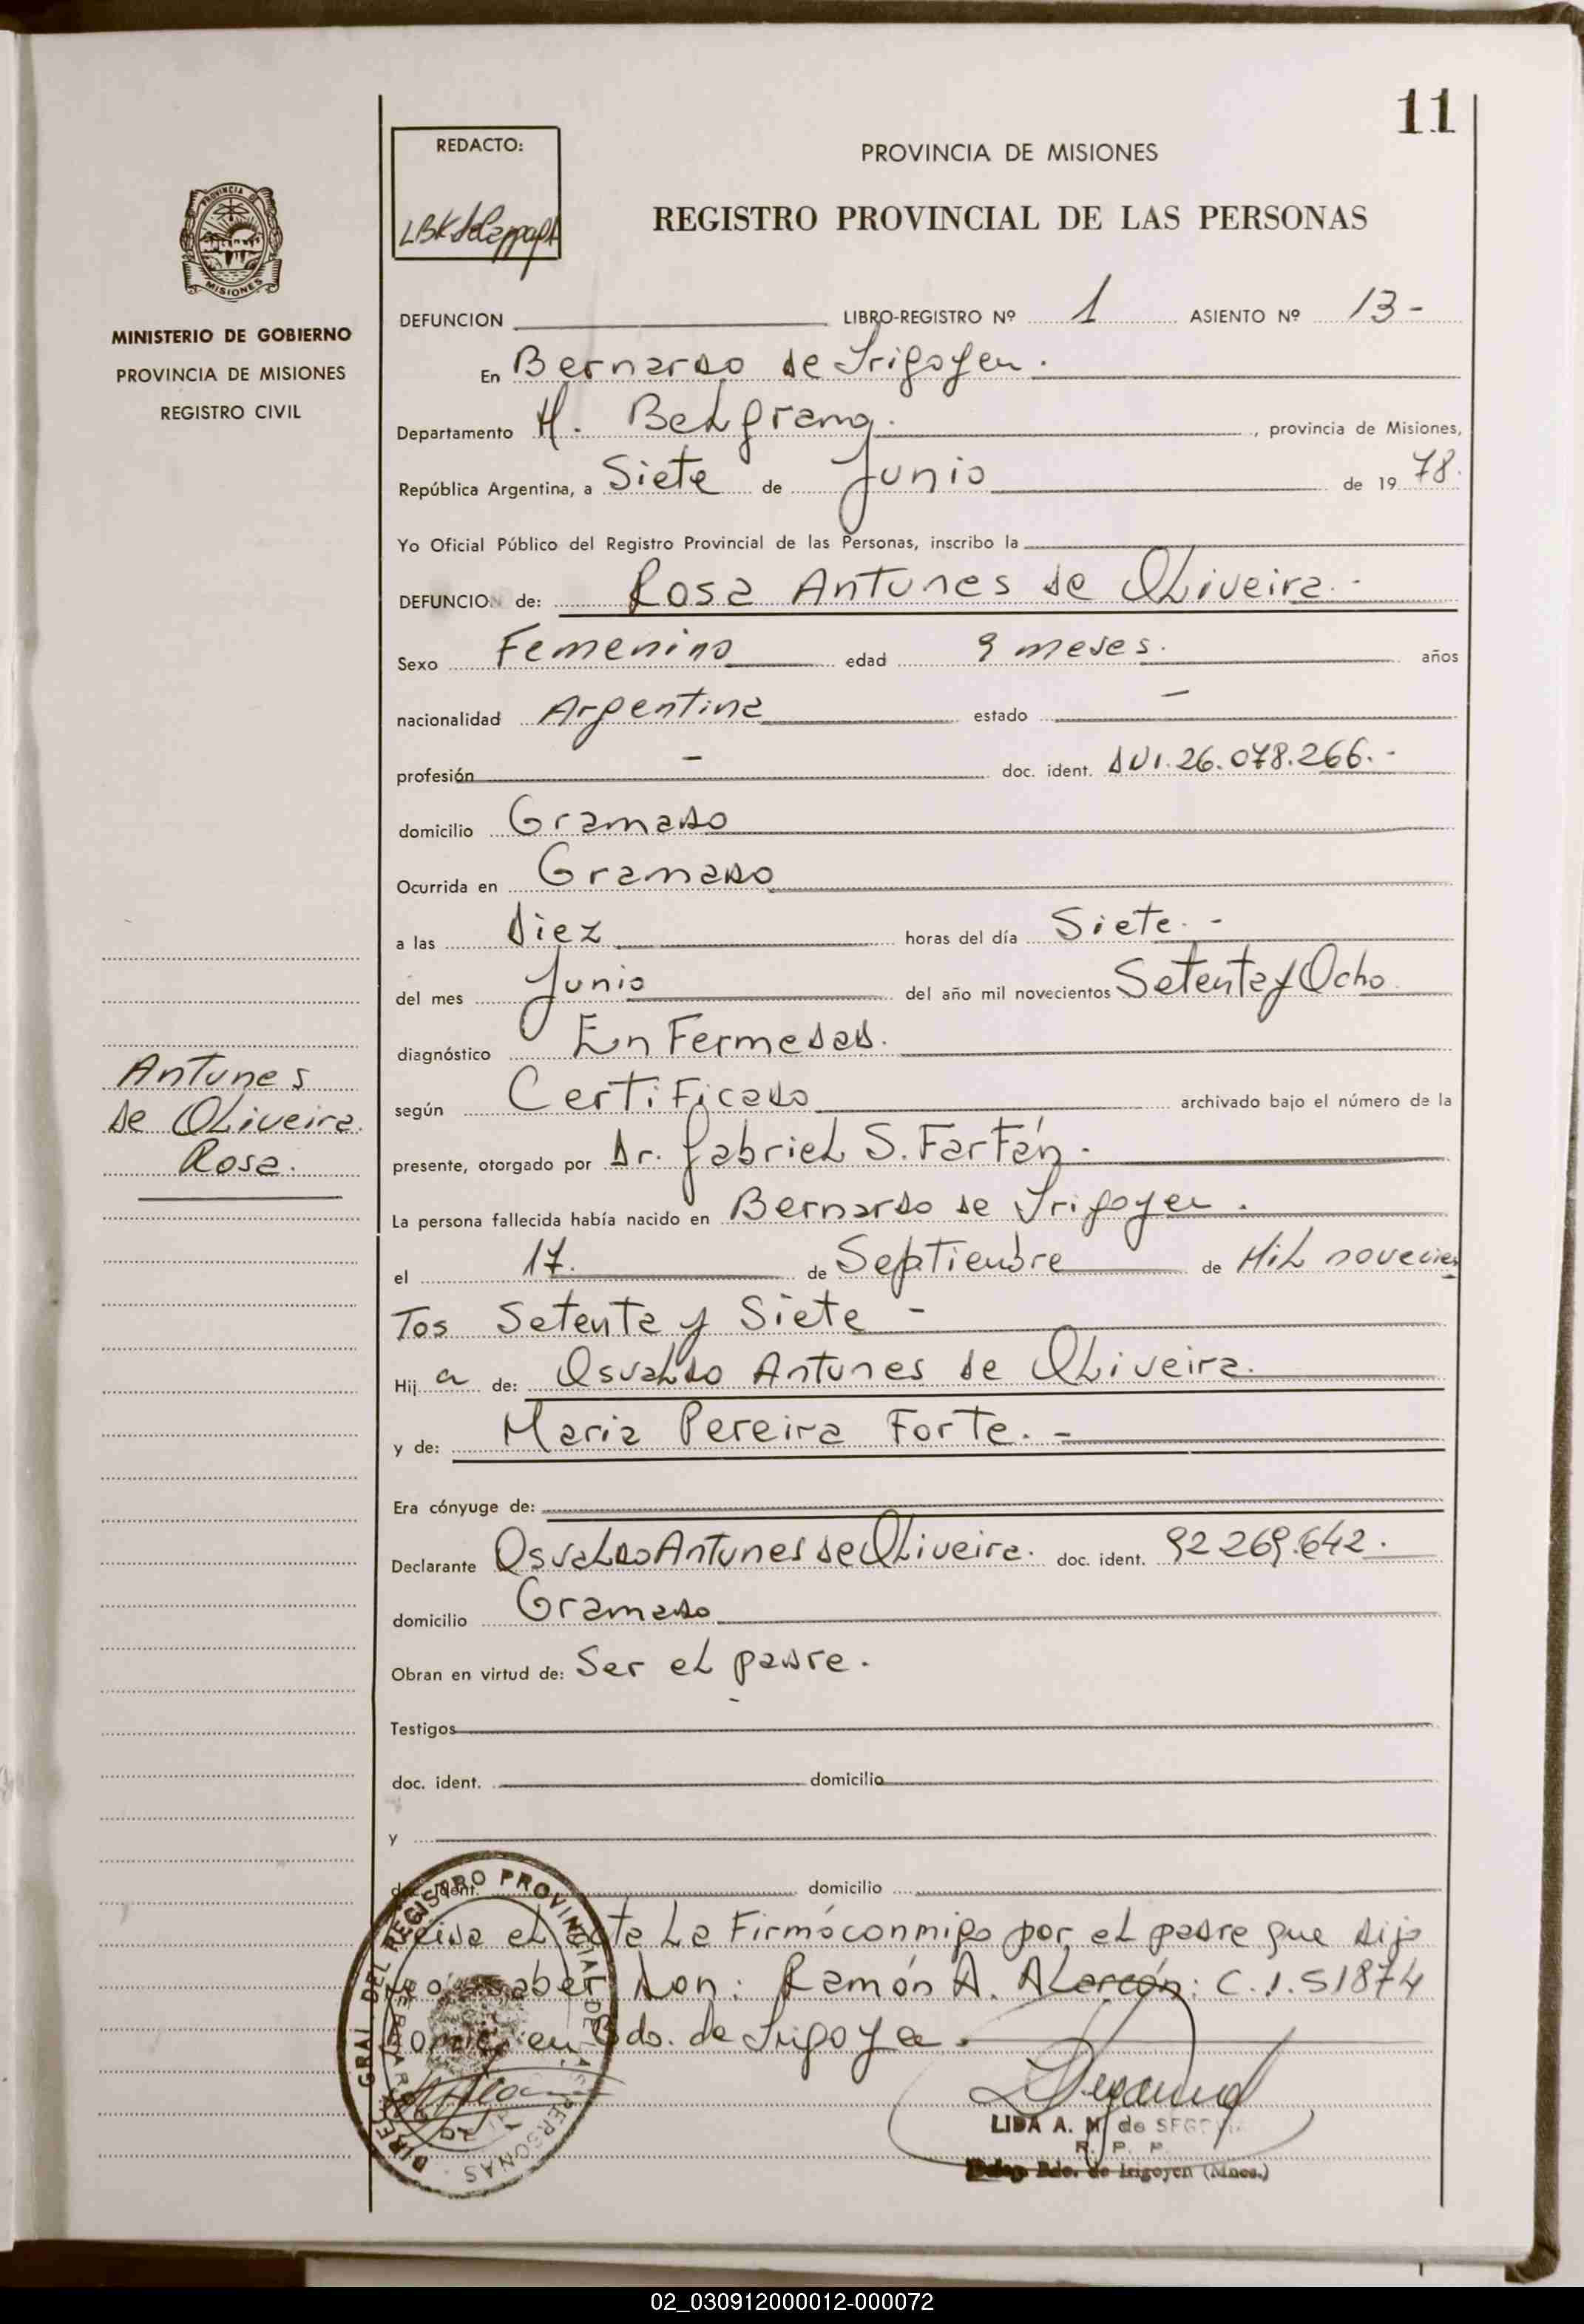 11
REDACTO:
PROVINCIA DE MISIONES
REGISTRO PROVINCIAL DE LAS PERSONAS
PROVINCIA
MISIONES
MINISTERIO DE GOBIERNO
PROVINCIA DE MISIONES
REGISTRO CIVIL
DEFUNCION LIBRO-REGISTRO Nº 1 ASIENTO Nº 13-
En Bernardo de Irigoyen.
Departamento M. Belgrano. , provincia de Misiones,
República Argentina, a Siete de Junio de 19 78.
Yo Oficial Público del Registro Provincial de las Personas, inscribo la
DEFUNCION de: Rosa Antunes de Oliveira.-
Sexo Femenino edad 9 meses. años
nacionalidad Argentina estado -
profesión - doc. ident. DNI. 26.078.266.-
domicilio Gramado
Ocurrida en Gramado
a las Diez horas del día Siete.-
del mes Junio del año mil novecientos Setenta y Ocho
diagnóstico Enfermedad.
según Certificado archivado bajo el número de la
presente, otorgado por Dr. Gabriel S. Farfán.
La persona fallecida había nacido en Bernardo de Irigoyen.
el 17. de Septiembre de Mil novecien
Tos Setenta y Siete -
Hij a de: Osvaldo Antunes de Oliveira.
y de: Maria Pereira Forte.-
Era cónyuge de:
Declarante Osvaldo Antunes de Oliveira. doc. ident. 92 269.642.
domicilio Gramado
Obran en virtud de: Ser el padre.
Testigos
doc. ident. domicilio
y
doc. ident. domicilio
Antunes
de Oliveira.
Rosa.
el acta La Firmó conmigo por el padre que dijo
no saber don: Ramón A. Alarcón: C.I. 51874
en Bdo. de Irigoyen.
DIREC. GRAL. DEL REGISTRO PROVINCIAL DE LAS PERSONAS
LIDA A. M. de
R. P. P.
Deleg. Bdo. de Irigoyen (Mnes.)
02_030912000012-000072